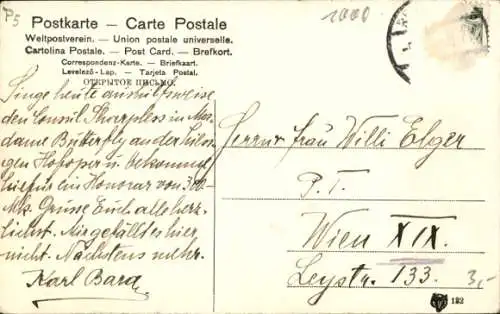 P5
2000
Postkarte — Carte Postale
Weltpostverein. — Union postale universelle.
Cartolina Postale. — Post Card. — Brefkort.
Correspondenz-Karte. — Briefkaart.
Levelező-Lap. — Tarjeta Postal.
ОТКРЫТОЕ ПИСЬМО.
Singe heute aushilfsweise
den Consul Sharpless in Ma-
dame Butterfly an der hiesi-
gen Hofoper u. bekomme
hiefür ein Honorar von 300
Mk. Grüsse Euch alle herz-
lichst. Mir gefällt es hier
nicht. Nächstens mehr.
Karl Bara
Herrn u. Frau Willi Elger
P. T.
Wien XIX.
Leystr. 133.
3,-
182